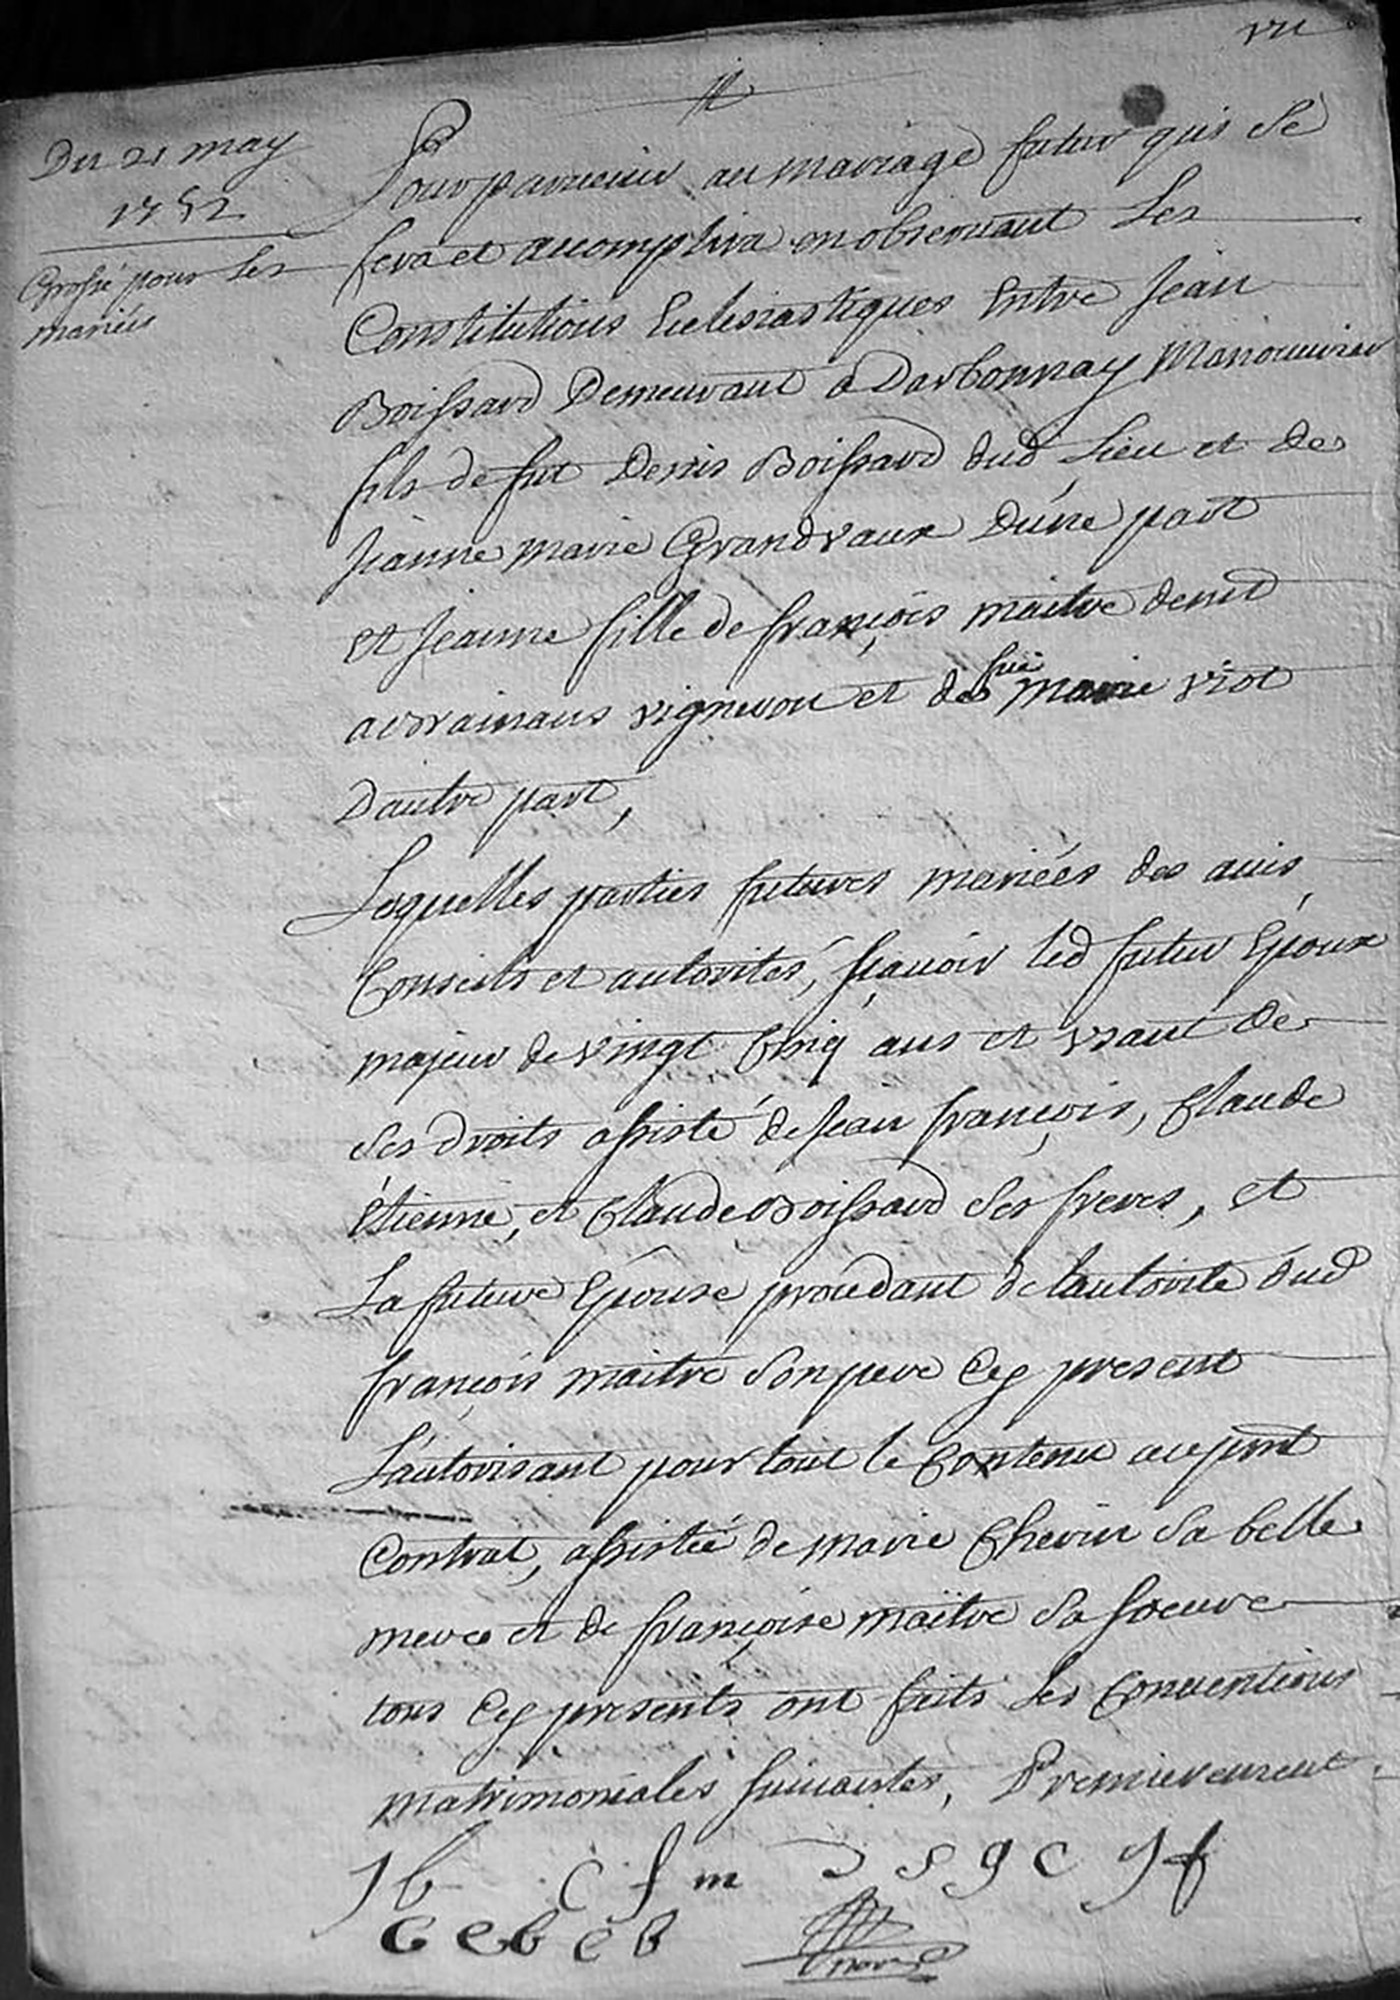 vu
Du 21 may
1752
Grossé pour les
mariés
Pour parvenir au mariage futur qui se
fera et accomplira en observant les
Constitutions Eclesiastiques Entre Jean
Boissard Demeurant a Darbonnay Manouvrier
fils de fut Denis Boissard dud lieu et de
Jeanne marie Grandvaux D'une part
et Jeanne fille de françois maitre demt
a vigneron et de fue Marie viot
D'autre part,
Lesquelles parties futures mariées des avis
Conseils et autorités, sçavoir led futur Epoux
majeur de vingt Cinq ans et usant de
ses droits assisté de Jean françois, Claude
étienne, et Claude Boissard ses freres, et
La future Epouse procedant de l'autorité dud
françois maitre son pere Cy present
L'autorisant pour tout le Contenu au pnt
Contrat, assistée de marie Chevin sa belle
mere et de françoise maitre sa soeure
tous Cy presents ont faits les Conventions
matrimoniales suivantes, Premierement
J b C f m D s g c J f
C e b c b